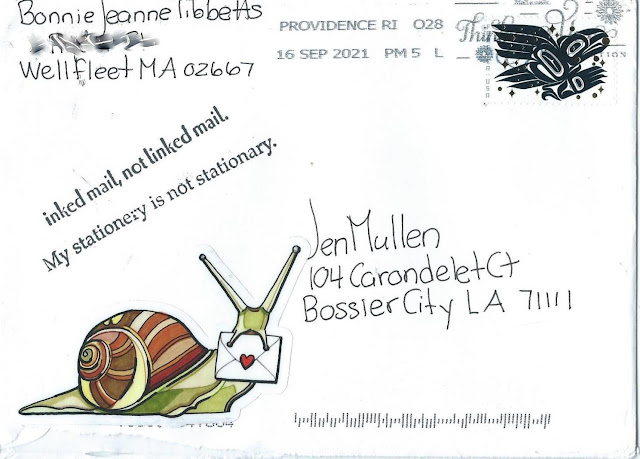 Bonnie Jeanne Tibbetts
Wellfleet MA 02667
PROVIDENCE RI 028
16 SEP 2021 PM 5 L
USA
inked mail, not linked mail.
My stationery is not stationary.
Jen Mullen
104 Carondelet Ct
Bossier City LA 71111